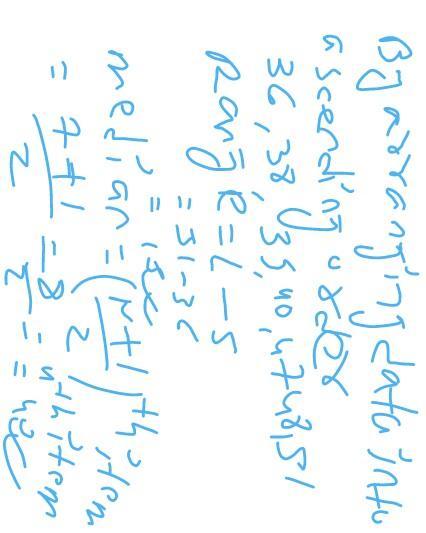 By arranging data into
ascending order
36, 38, 35, 40, 47 48, 51
Range = L - S
= 51 - 36
= 15
median = (n+1/2)th item
= 7+1/2 = 8/2 = 4th item
= 40